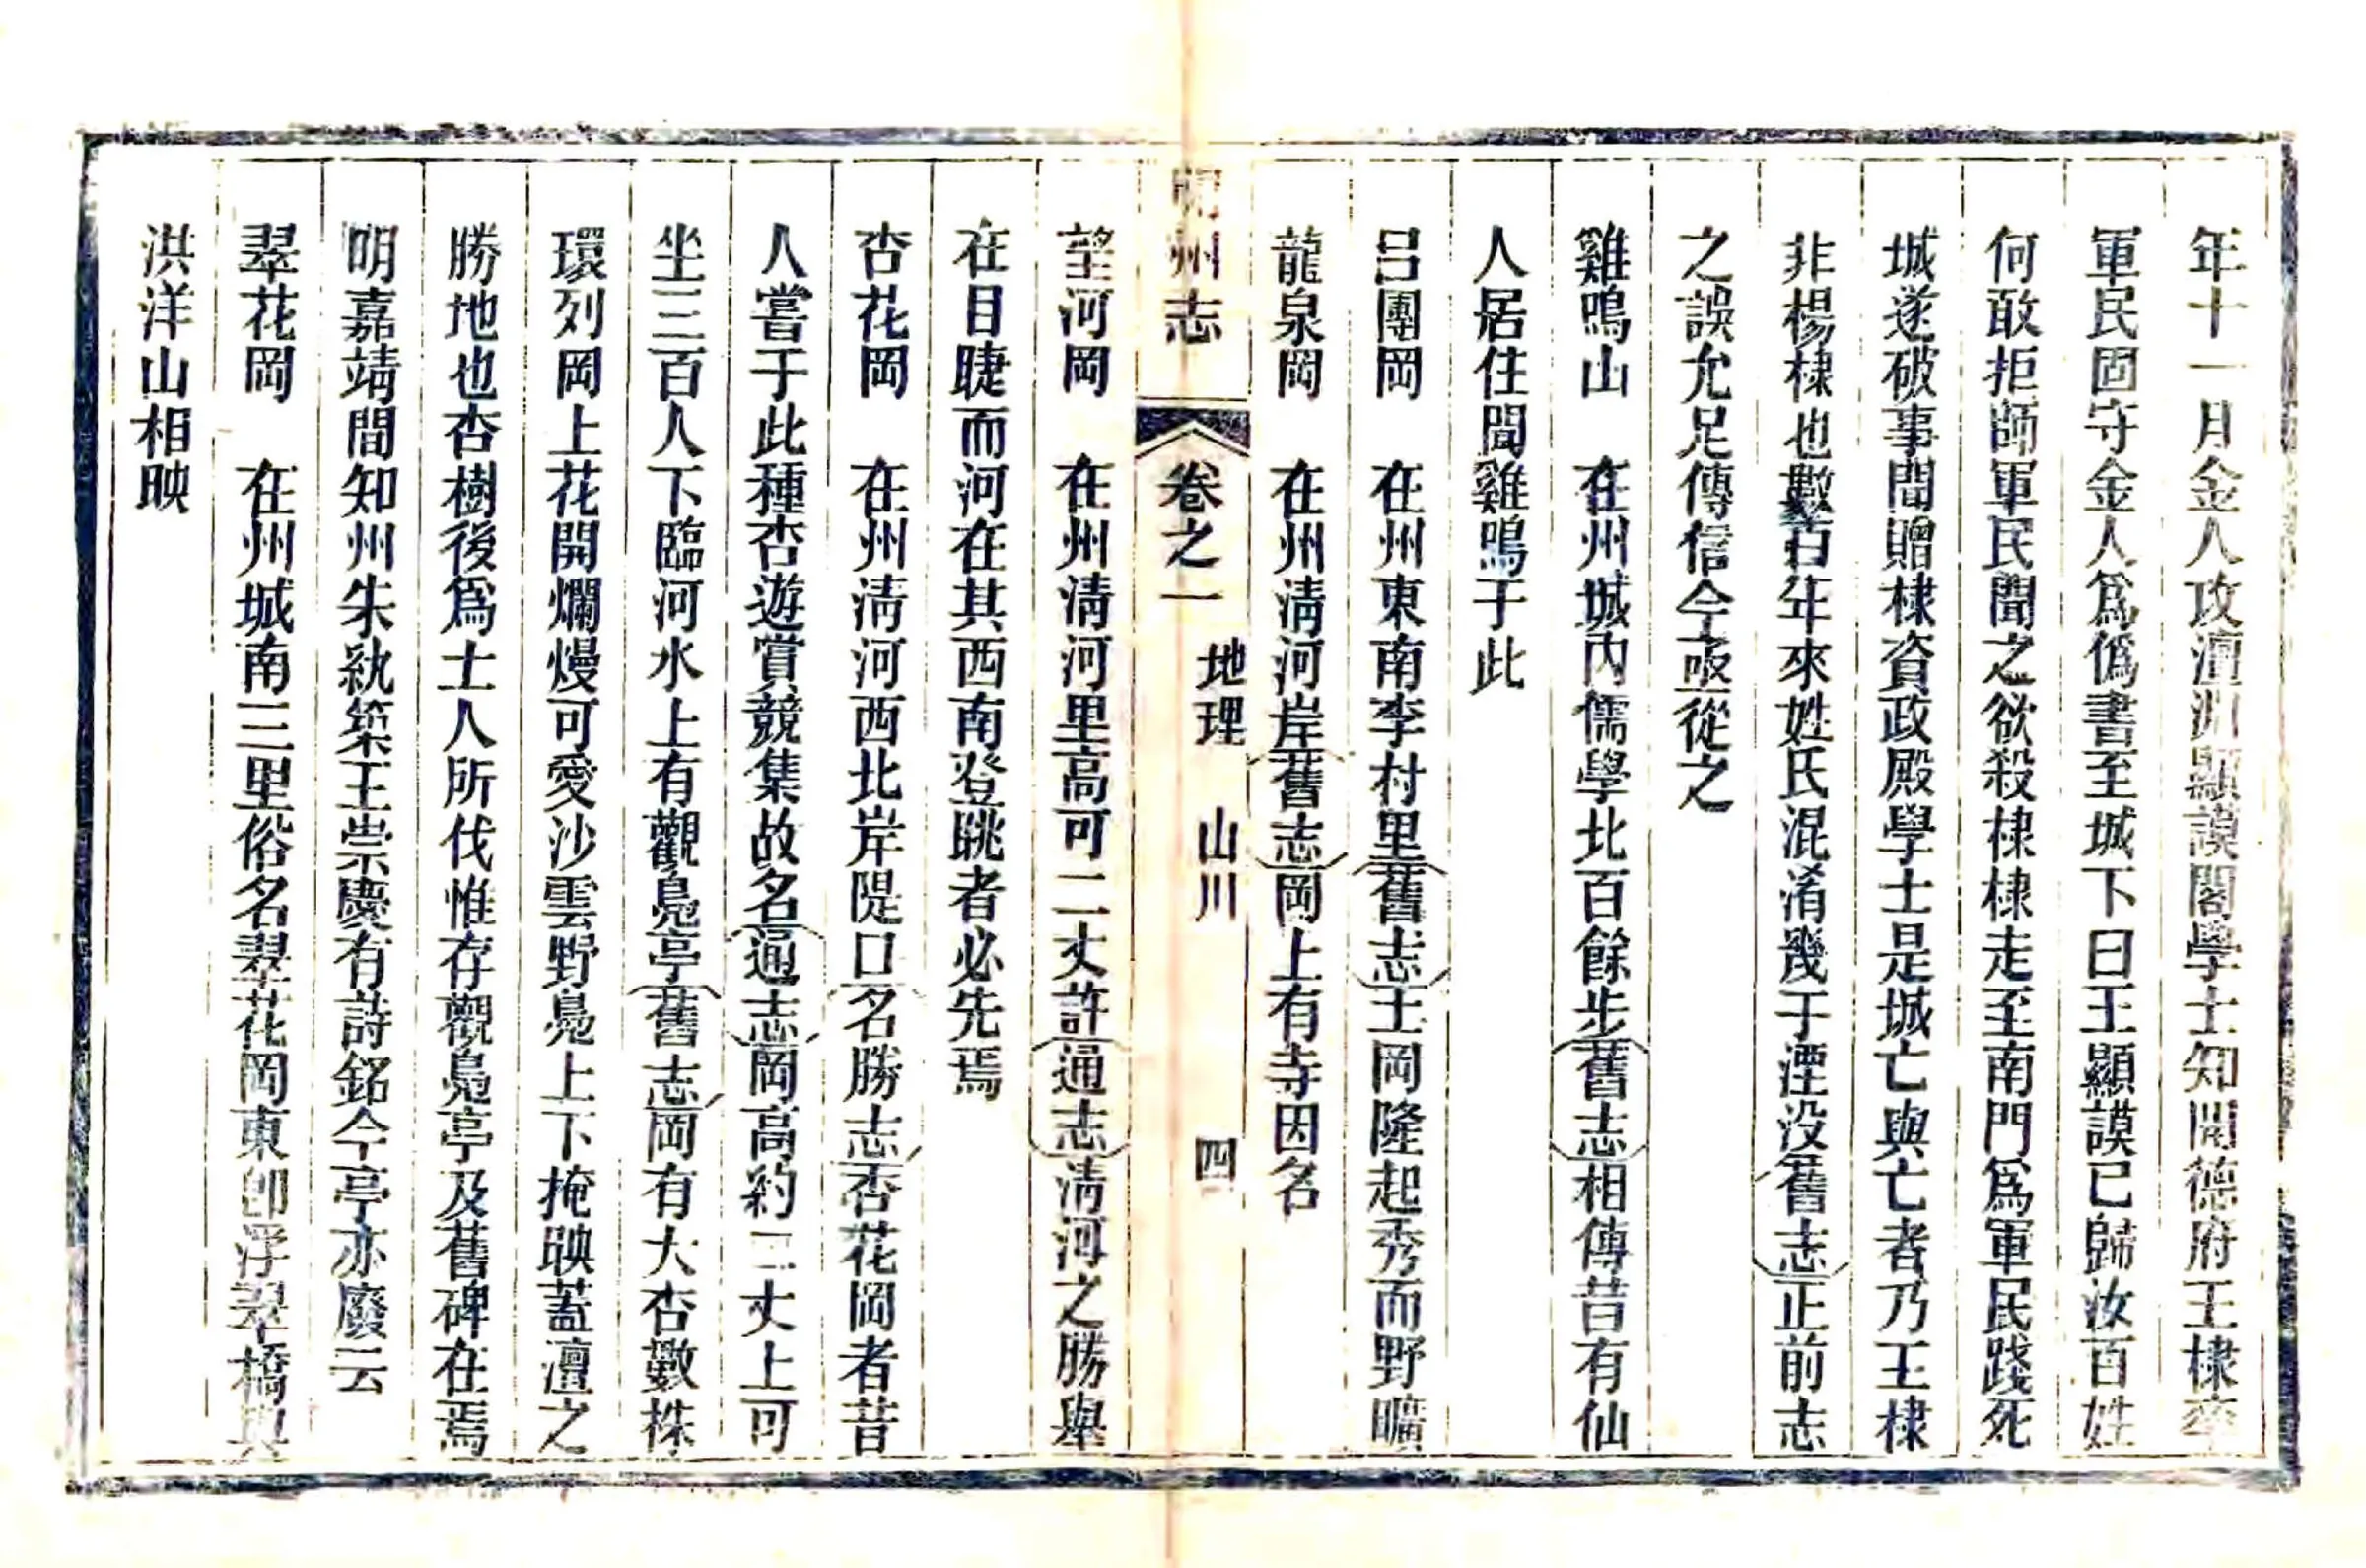 年十一月金人攻澶淵顯謨閣學士知開德府王棣率
軍民固守金人爲僞書至城下曰王顯謨已歸汝百姓
何敢拒師軍民聞之欲殺棣棣走至南門爲軍民踐死
城遂破事聞贈棣資政殿學士是城亡與亡者乃王棣
非楊棣也數百年來姓氏混淆幾于湮没舊志正前志
之誤允足傳信今亟從之
雞鳴山　在州城内儒學北百餘步舊志相傳昔有仙
人居住聞雞鳴于此
呂團岡　在州東南李村里舊志土岡隆起秀而野曠
龍泉岡　在州淸河岸舊志岡上有寺因名
州志　卷之一　地理　山川　四
望河岡　在州淸河里高可二丈許通志淸河之勝舉
在目睫而河在其西南登眺者必先焉
杏花岡　在州淸河西北岸隄口名勝志杏花岡者昔
人嘗于此種杏遊賞競集故名通志岡高約二丈上可
坐三百人下臨河水上有觀鳧亭舊志岡有大杏數株
環列岡上花開爛熳可愛沙雲野鳧上下掩映蓋澶之
勝地也杏樹後爲土人所伐惟存觀鳧亭及舊碑在焉
明嘉靖間知州朱紈築王崇慶有詩銘今亭亦廢云
翠花岡　在州城南三里俗名翠花岡東卽浮翠橋與
洪洋山相映